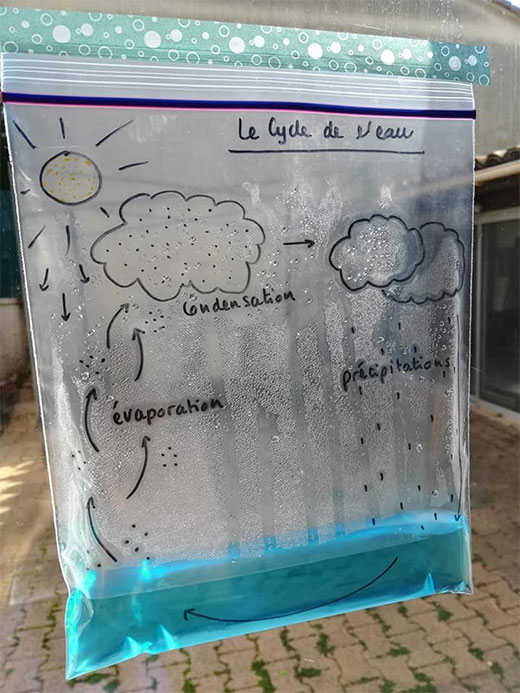 Le Cycle de l'eau
Condensation
précipitations
évaporation